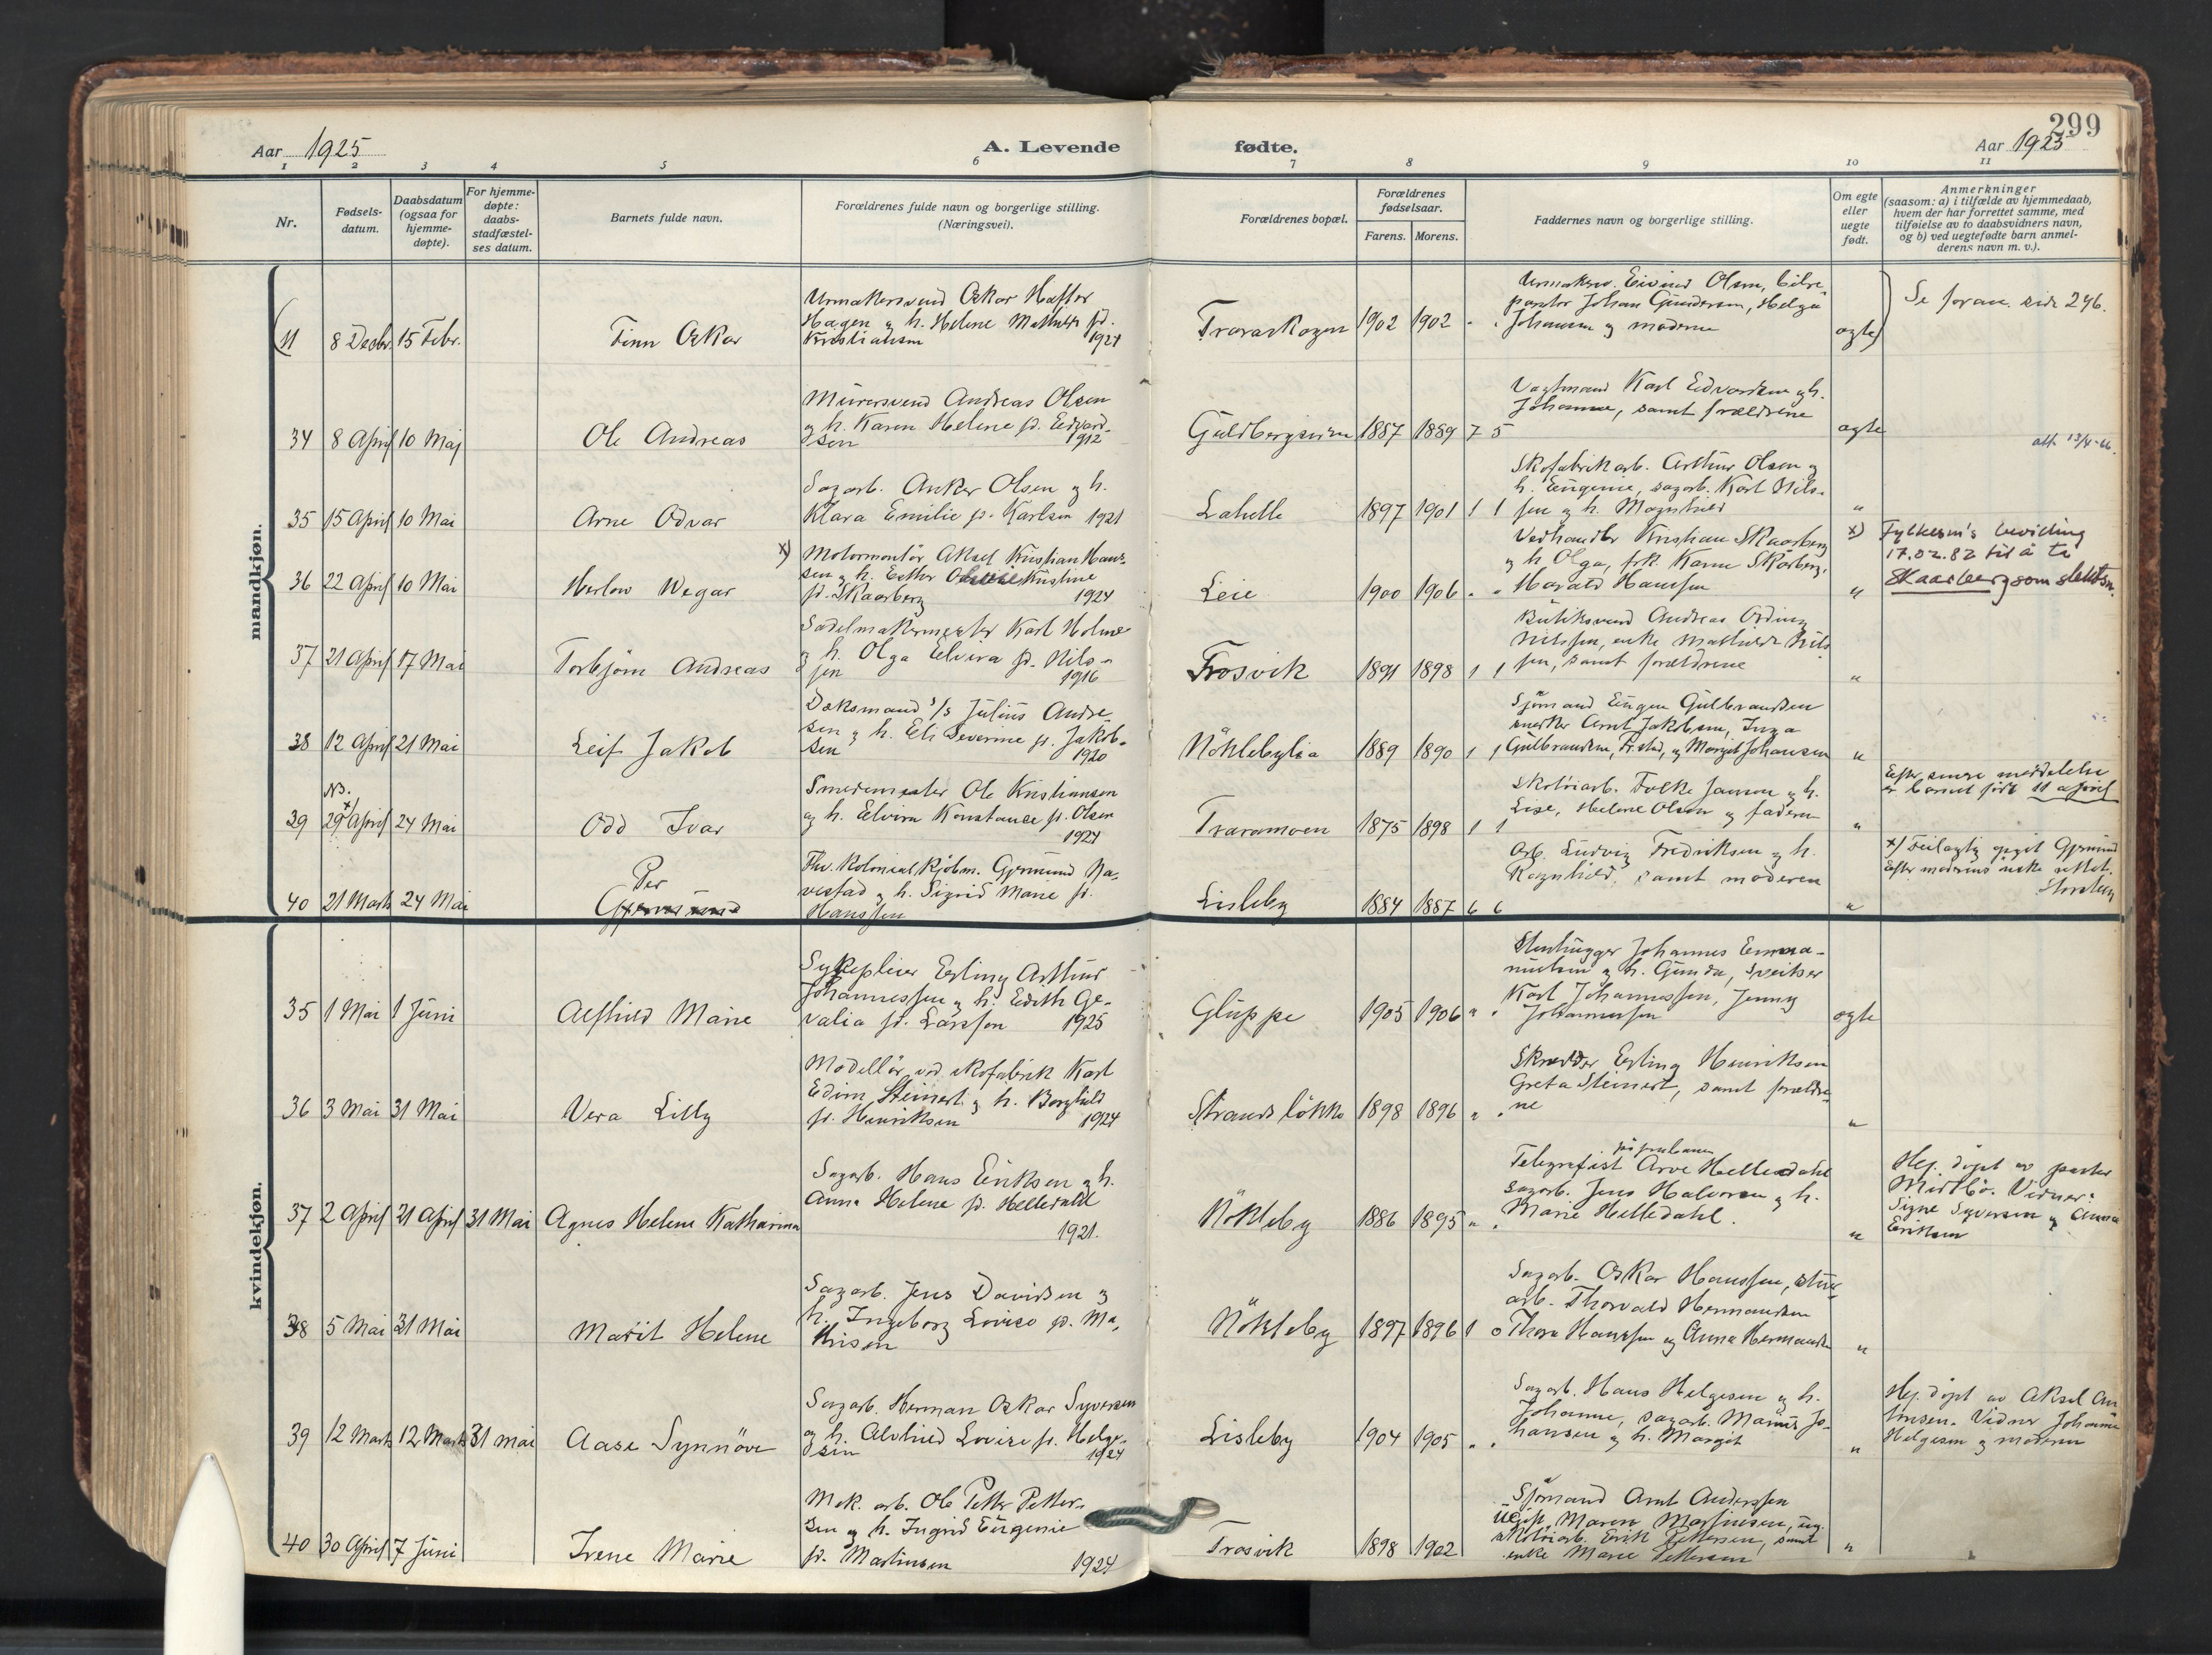 299
Aar 1925
A. Levende
fødte.
Aar 1925
1 2 3 4 5 6 7 8 9 10 11
Nr.
Fødsels-
datum.
Daabsdatum
(ogsaa for
hjemme-
døpte).
For hjemme-
døpte:
daabs-
stadfæstel-
ses datum.
Barnets fulde navn.
Forældrenes fulde navn og borgerlige stilling.
(Næringsvei).
Forældrenes bopæl.
Forældrenes
fødselsaar.
Farens. Morens.
Faddernes navn og borgerlige stilling.
Om egte
eller
uegte
født.
Anmerkninger
(saasom: a) i tilfælde av hjemmedaab,
hvem der har forrettet samme, med
tilføielse av to daabsvidners navn,
og b) ved uegtefødte barn anmel-
derens navn m. v.).
mandkjøn.
(11 8 Decbr. 15 Febr.
Finn Oskar
Urmakersvend Oskar Haftor
Hagen og h. Helene Mathilde fd.
Kristiansen 1921
Traraskogen 1902 1902
Urmakersv. Eivind Olsen, bilre-
paratør Johan Gundersen, Helga
Johansen og moderen
egte)
Se foran side 246.
34 8 April 10 Mai
Ole Andreas
Murersvend Andreas Olsen
og h. Karen Helene fd. Edvard-
sen 1912
1887 1889 7 5
Vagtmand Karl Edvardsen og h.
Johanne, samt forældrene
egte
att. 13/4-66.
35 15 April 10 Mai
Arne Odvar
Sagarb. Anker Olsen og h.
Klara Emilie fd. Karlsen 1921
Lahelle 1897 1901 1 1
Skofabrikarb. Arthur Olsen og
h. Eugenie, sagarb. Karl Nils-
sen og h. Magnhild
"
36 22 April 10 Mai
Herlov Wegar
x) Motormontør Aksel Kristian Han-
sen og h. Esther Kristine
fd. Skaarberg 1924
Leie 1900 1906
Vedhandler Kristian Skaarberg
og h. Olga, frk. Karen Skarberg,
Harald Hanssen
"
x) Fylkesm's bevilling
17.02.82 til å ta
Skaarberg som slektsn.
37 21 April 17 Mai
Torbjørn Andreas
Sadelmakermester Karl Holme
og h. Olga Elvira fd. Nils-
sen 1916
Trosvik 1891 1898 1 1
Butiksvend Andreas Ording
Nilssen, enke Mathilde Nils-
sen, samt forældrene
"
38 12 April 21 Mai
Leif Jakob
Dæksmand s/s Julius Andre-
sen og h. Eli Severine fd. Jakob-
sen 1920
Nøklebylia 1889 1890 1 1
Sjømand Eugen Gulbrandsen
snekker Arnt Jakobsen, Inga
Gulbrandsen, Fr.stad, og Margit Johansen
"
NB.
39 29 x) April 24 Mai
Odd Ivar
Smedemester Ole Kristiansen
og h. Elvira Konstanse fd. Olsen
1924
Traramoen 1875 1898 1 1
Skotøiarb. Folke Janson og h.
Lise, Helene Olsen og faderen
"
Efter senere meddelelse
er barnet født 11 april
40 21 Marts 24 Mai
Per
Gjermund
Fhv. Kolonialkjøbm. Gjermund Na-
vestad og h. Sigrid Marie fd.
Hanssen
Lisleby 1884 1887 6 6
Arb. Ludvig Fredriksen og h.
Ragnhild, samt moderen
"
x) Feilagtig opgit Gjermund
Efter moderens ønske rettet.
kvindekjøn.
35 1 Mai 1 Juni
Alfhild Marie
Sykepleier Erling Arthur
Johannessen og h. Edith Ge-
valia fd. Larsson 1925
Gluppe 1905 1906
Stenhugger Johannes Emma-
nuelsen og h. Gunda, sveitser
Karl Johannessen, Jenny
Johannessen
egte
36 3 Mai 31 Mai
Vera Lilly
Modellør ved skofabrik Karl
Edvin Steinert og h. Borghild
fd. Henriksen 1924
Strandsløkke 1898 1896
Skrædder Erling Henriksen
Greta Steinert, samt forældre-
ne
"
37 2 April 21 April 31 Mai
Agnes Helene Katharina
Sagarb. Hans Eriksen og h.
Anna Helene fd. Helledahl
1921.
Nøkleby 1886 1895
Telegrafist Arve Helledahl
sagarb. Jens Halvorsen og h.
Marie Helledahl.
"
Hj. døpt av pastor
Midtbø. Vidner:
Signe Syversen og Anna
Eriksen
38 5 Mai 31 Mai
Marit Helene
Sagarb. Jens Davidsen og
h. Ingeborg Lovise fd. Ma-
thisen
Nøkleby 1897 1896 1 0
Sagarb. Oskar Hanssen, stuer-
arb. Thorvald Hermansen
Thora Hanssen og Anna Hermansen
"
39 12 Marts 12 Marts 31 mai
Aase Synnøve
Sagarb. Herman Oskar Syversen
og h. Alvhild Lovise fd. Helge-
sen 1924
Lisleby 1904 1905
Sagarb. Hans Helgesen og h.
Johanne, sagarb. Marius Jo-
hansen og h. Margit
"
Hj. døpt av Aksel An-
tonsen. Vidner Johanne
Helgesen og moderen
40 30 April 7 Juni
Irene Marie
Mek. arb. Ole Petter Petter-
sen og h. Ingrid Eugenie
fd. Martinsen 1924
Trosvik 1898 1902
Sjømand Arnt Anderssen
ugift Maren Martinsen, ug.
skotøiarb. Erik Pettersen, samt
enke Marie Pettersen
"